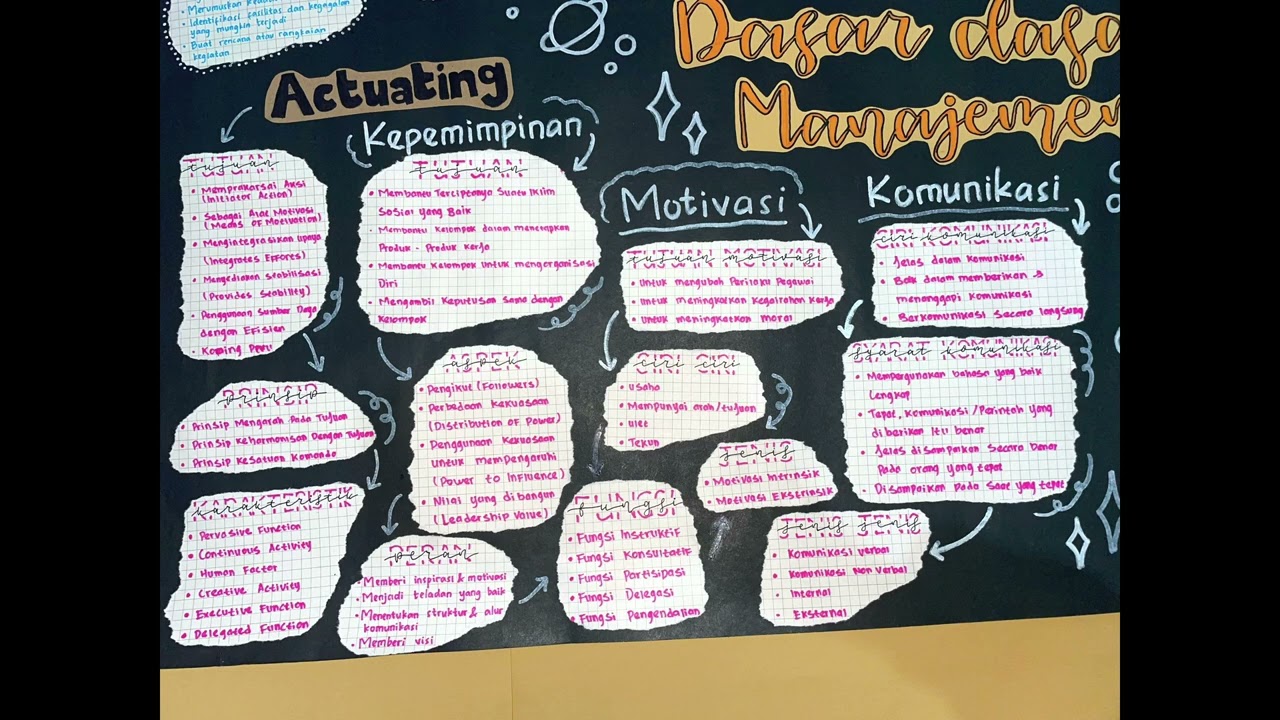 Merumuskan
• Identifikasi fasilitas dan kegagalan
yang mungkin terjadi
• Buat rencana atau rangkaian
kegiatan
Dasar dasa
Manajemen
Actuating
TUJUAN
tujuan
• Memprakarsai Aksi
(Initiator Action)
• Sebagai Alat Motivasi
(Means of Motivation)
• Mengintegrasikan upaya
(Integrates Effores)
• Menyediakan Stabilisasi
(Provides Stability)
• Penggunaan Sumber Daya
dengan Efisien
PRINSIP
prinsip
• Prinsip Mengarah Pada Tujuan
• Prinsip Keharmonisan Dengan Tujuan
• Prinsip Kesatuan Komando
KARAKTERISTIK
karakteristik
• Pervasive Function
• Continuous Activity
• Human Factor
• Creative Activity
• Executive Function
• Delegated Function
Kepemimpinan
TUJUAN
tujuan
• Membantu Terciptanya Suatu Iklim
Sosial yang Baik
• Membantu Kelompok dalam menetapkan
Produk - Produk Kerja
• Membantu Kelompok untuk mengorganisasi
Diri
• Mengambil Keputusan Sama dengan
Kelompok
ASPEK
aspek
• Pengikut (Followers)
• Perbedaan Kekuasaan
(Distribution of Power)
• Penggunaan Kekuasaan
untuk mempengaruhi
(Power to Influence)
• Nilai yang dibangun
(Leadership Value)
PERAN
peran
• Memberi inspirasi & motivasi
• Menjadi teladan yang baik
• Menentukan struktur & alur
komunikasi
• Memberi visi
FUNGSI
fungsi
• Fungsi Instruktif
• Fungsi Konsultatif
• Fungsi Partisipasi
• Fungsi Delegasi
• Fungsi Pengendalian
Motivasi
TUJUAN MOTIVASI
tujuan motivasi
• Untuk mengubah Perilaku Pegawai
• Untuk meningkatkan Kegairahan Kerja
• Untuk meningkatkan moral
CIRI CIRI
ciri ciri
• Usaha
• Mempunyai arah/tujuan
• Ulet
• Tekun
JENIS
jenis
• Motivasi Intrinsik
• Motivasi Ekstrinsik
Komunikasi
CIRI KOMUNIKASI
ciri komunikasi
• Jelas dalam komunikasi
• Baik dalam memberikan &
menanggapi komunikasi
• Berkomunikasi Secara langsung
SYARAT KOMUNIKASI
syarat komunikasi
• Mempergunakan bahasa yang baik
Lengkap
• Tepat, Komunikasi/Perintah yang
diberikan itu benar
• Jelas disampaikan Secara benar
Pada orang yang tepat
• Disampaikan Pada Saat yang tepat
JENIS JENIS
jenis jenis
• Komunikasi Verbal
• Komunikasi Non Verbal
• Internal
• Eksternal